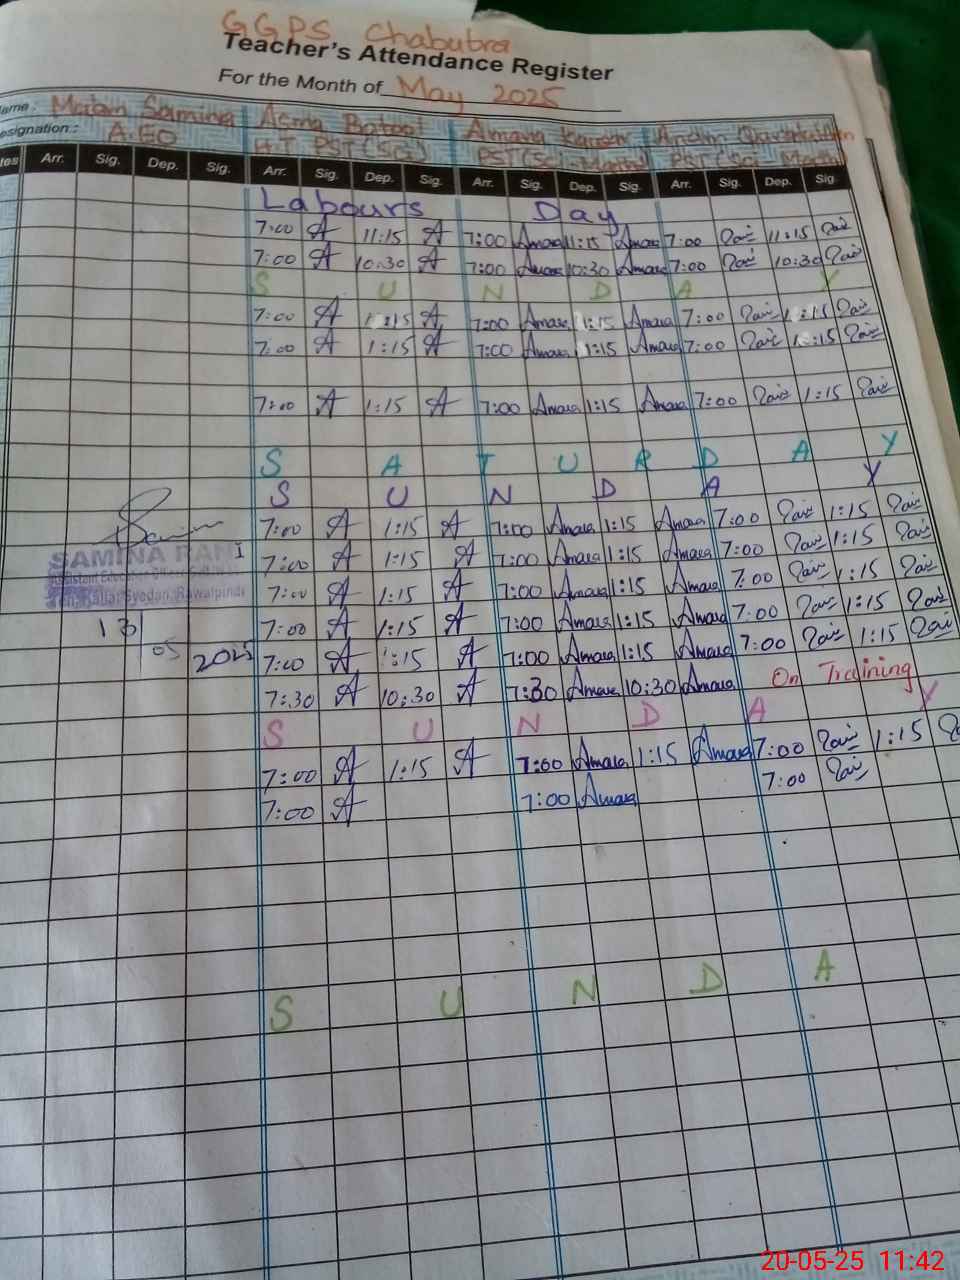 GGPS Chabutra
Teacher's Attendance Register
For the Month of May 2025
Name: Madam Samina Asma Batool Amara Kausar
Designation: A.EO H.T PST(SG) PST(SG) PST(SG)
Arr. Sig. Dep. Sig. Arr. Sig. Dep. Sig. Arr. Sig. Dep. Sig. Arr. Sig. Dep. Sig.
Labours Day
7:00 A 11:15 A 7:00 Amara 11:15 Amara 7:00 11:15
7:00 A 10:30 A 7:00 Amara 10:30 Amara 7:00 10:30
S U N D A Y
7:00 A 1:15 A 7:00 Amara 1:15 Amara 7:00 1:15
7:00 A 1:15 A 7:00 Amara 1:15 Amara 7:00 1:15
7:00 A 1:15 A 7:00 Amara 1:15 Amara 7:00 1:15
S A T U R D A Y
S U N D A Y
7:00 A 1:15 A 7:00 Amara 1:15 Amara 7:00 1:15
SAMINA RANI 7:00 A 1:15 A 7:00 Amara 1:15 Amara 7:00 1:15
Assistant Education Officer 7:00 A 1:15 A 7:00 Amara 1:15 Amara 7:00 1:15
Syedan, Rawalpindi
13/05 7:00 A 1:15 A 7:00 Amara 1:15 Amara 7:00 1:15
2025 7:00 A 1:15 A 7:00 Amara 1:15 Amara 7:00 1:15
7:30 A 10:30 A 7:30 Amara 10:30 Amara On Training
S U N D A Y
7:00 A 1:15 A 7:00 Amara 1:15 Amara 7:00 1:15
7:00 A 7:00 Amara 7:00
S U N D A
20-05-25 11:42